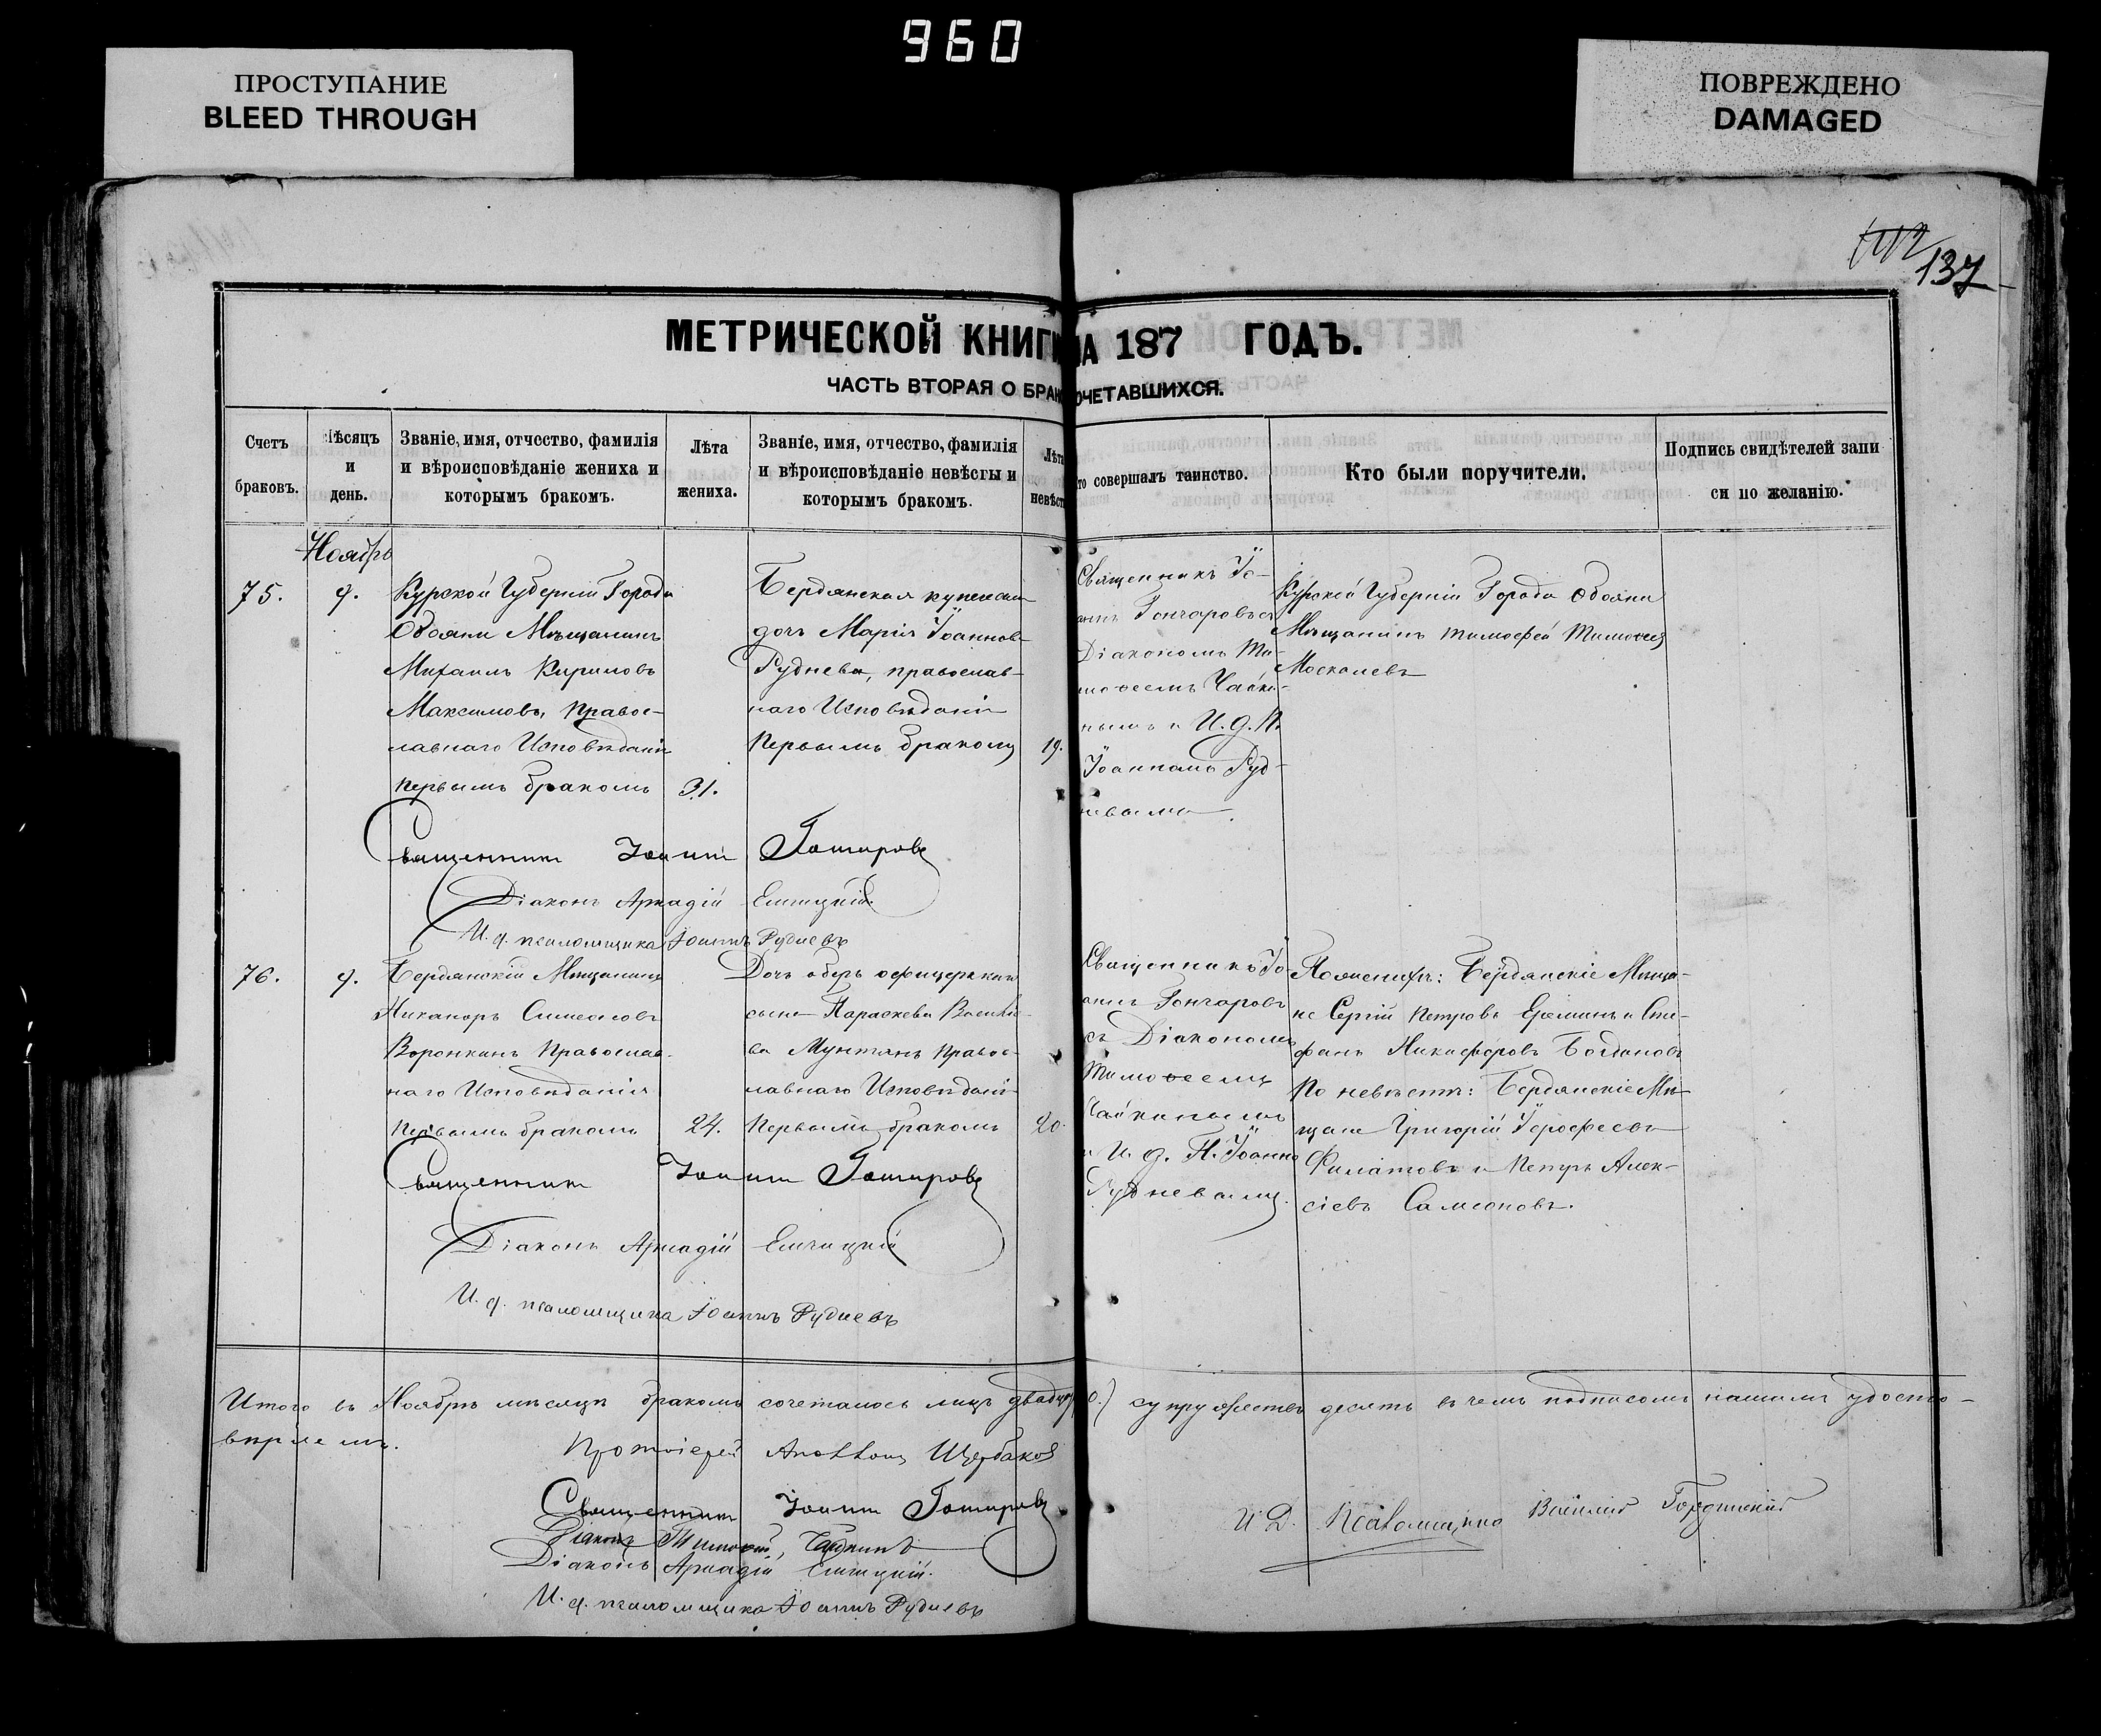 960
ПРОСТУПАНИЕ
BLEED THROUGH
ПОВРЕЖДЕНО
DAMAGED
137
МЕТРИЧЕСКОЙ КНИГИ НА 187 ГОДЪ.
ЧАСТЬ ВТОРАЯ О БРАКОСОЧЕТАВШИХСЯ.
Счетъ браковъ.
Мѣсяцъ и день.
Званіе, имя, отчество, фамилія и вѣроисповѣданіе жениха и которымъ бракомъ.
Лѣта жениха.
Званіе, имя, отчество, фамилія и вѣроисповѣданіе невѣсты и которымъ бракомъ.
Лѣта невѣст
то совершалъ таинство.
Кто были поручители.
Подпись свидѣтелей запи
си по желанію.
Ноябрь
75.
9.
Курской Губерніи Города
Обояни Мѣщанинъ
Михаилъ Кириловъ
Максимовъ, Правос-
лавнаго Исповѣданія
первымъ бракомъ
31.
Бердянская купеческая
дочь Марія Іоаннова
Руднева, православ-
наго Исповѣданія
Первымъ бракомъ
19.
Священникъ Іо-
аннъ Гончаровъ съ
Діакономъ Ти-
моѳеемъ Чайки-
нымъ и И. д. П.
Іоанномъ Руд-
невымъ.
Курской Губерніи Города Обояни
Мѣщанинъ Тимофей
Москалевъ
Священникъ Іоаннъ Гончаровъ
Діаконъ Аркадій
И. д. псаломщика Іоаннъ Рудневъ
76.
9.
Бердянскій Мѣщанинъ
Никаноръ Симеоновъ
Воронкинъ Православ-
наго Исповѣданія
Первымъ бракомъ
24.
Дочь оберъ офицерскаго
сына Параскева Василье-
ва Мунтянъ Правос-
лавнаго Исповѣданія
Первымъ бракомъ
20.
Священникъ Іо-
аннъ Гончаровъ
съ Діакономъ
Тимоѳеемъ
Чайкинымъ
и И. д. П. Іоанно
Рудневымъ.
По женихѣ: Бердянскіе Мѣща-
не Сергій Петровъ Ереминъ и Сте-
фанъ Никифоровъ Богдановъ
По невѣстѣ: Бердянскіе Мѣ-
щане Григорій Іерофеевъ
Филатовъ и Петръ Алек-
сіевъ Самсоновъ.
Священникъ Іоаннъ Гончаровъ
Діаконъ Аркадій
И. д. псаломщика Іоаннъ Рудневъ
Итого въ Ноябрѣ мѣсяцѣ бракомъ сочеталось лицъ двадц 0.) супружествъ десять въ чемъ подписомъ нашимъ удосто-
вѣряемъ.
Протоіерей Щербаковъ
Священникъ Іоаннъ Гончаровъ
Діаконъ Тимоѳей Чайкинъ
Діаконъ Аркадій
И. д. псаломщика Іоаннъ Рудневъ
И Д. Псаломщика Василій